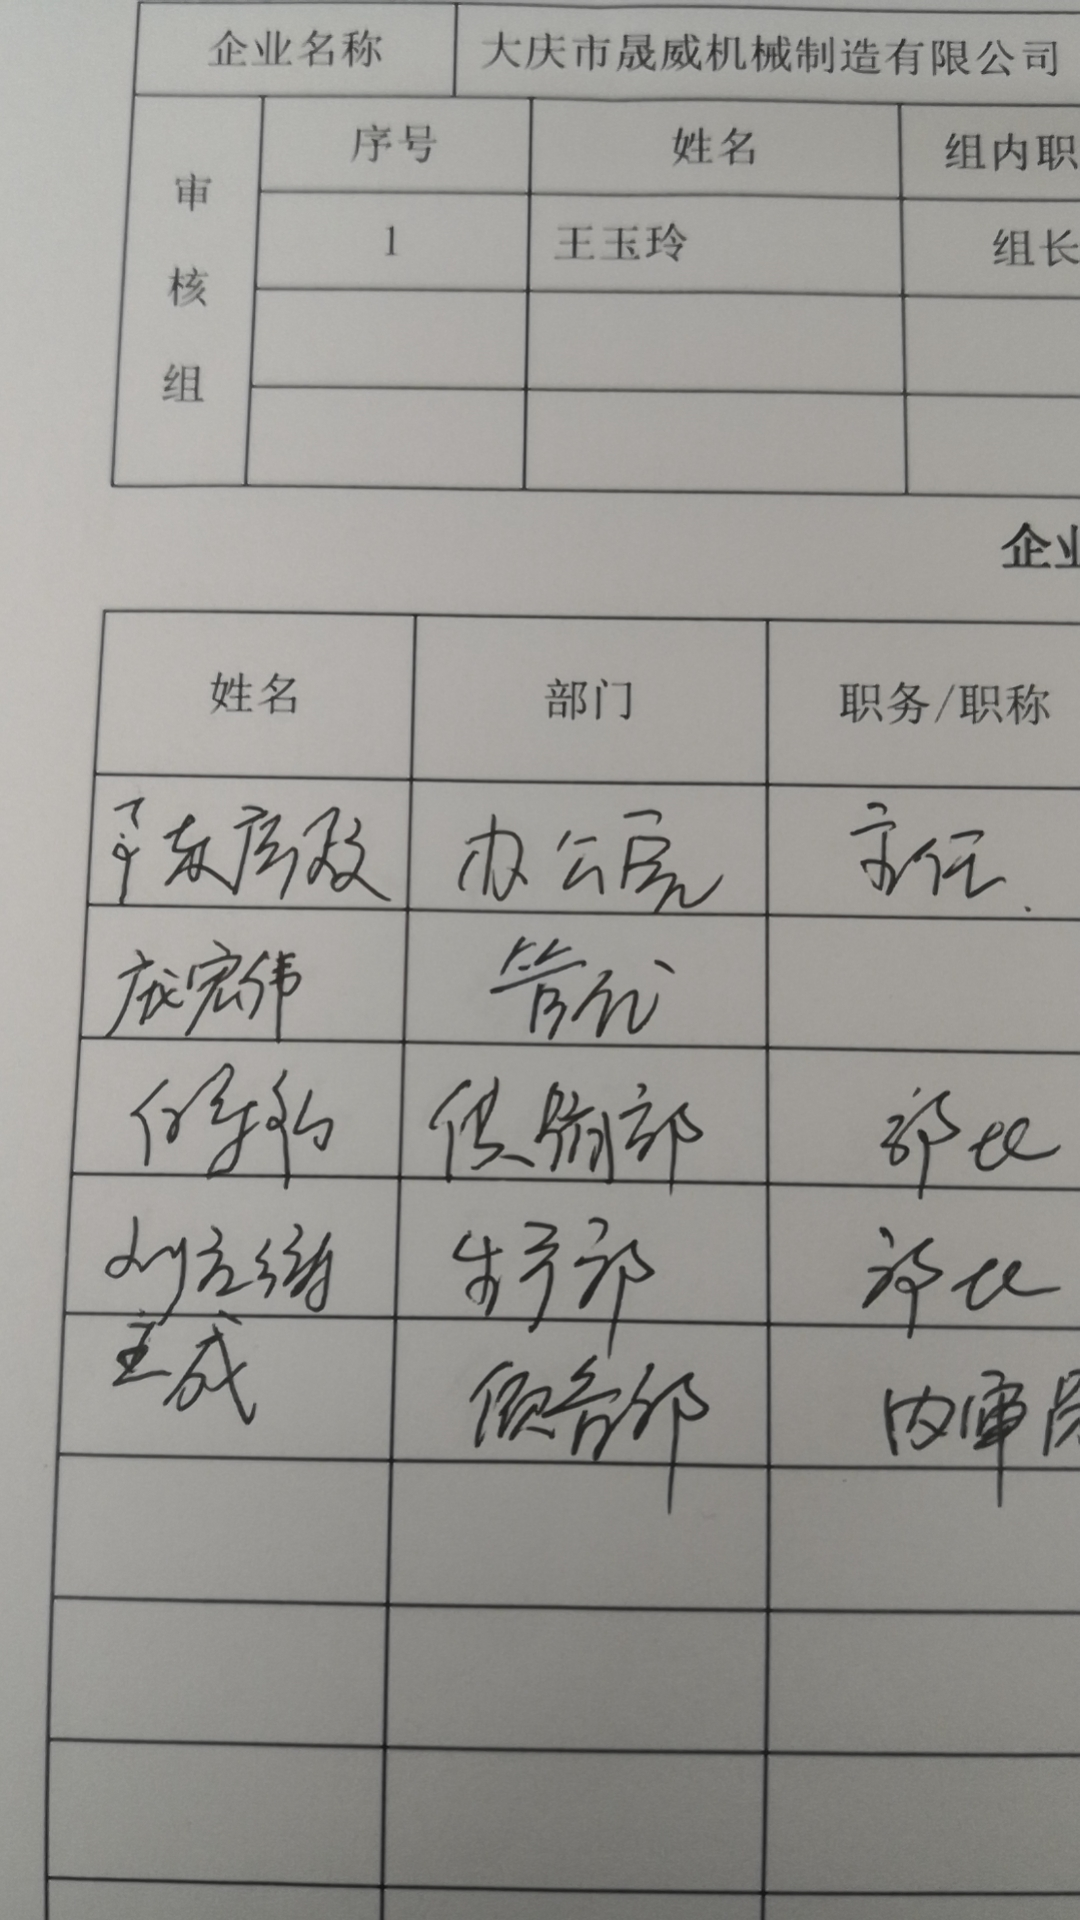 企业名称 大庆市晟威机械制造有限公司
审核组 序号 姓名 组内职
1 王玉玲 组长
企业
姓名 部门 职务/职称
办公室 主任
庞宏伟 管代
供销部 部长
刘 生产部 部长
王成 质管部 内审员